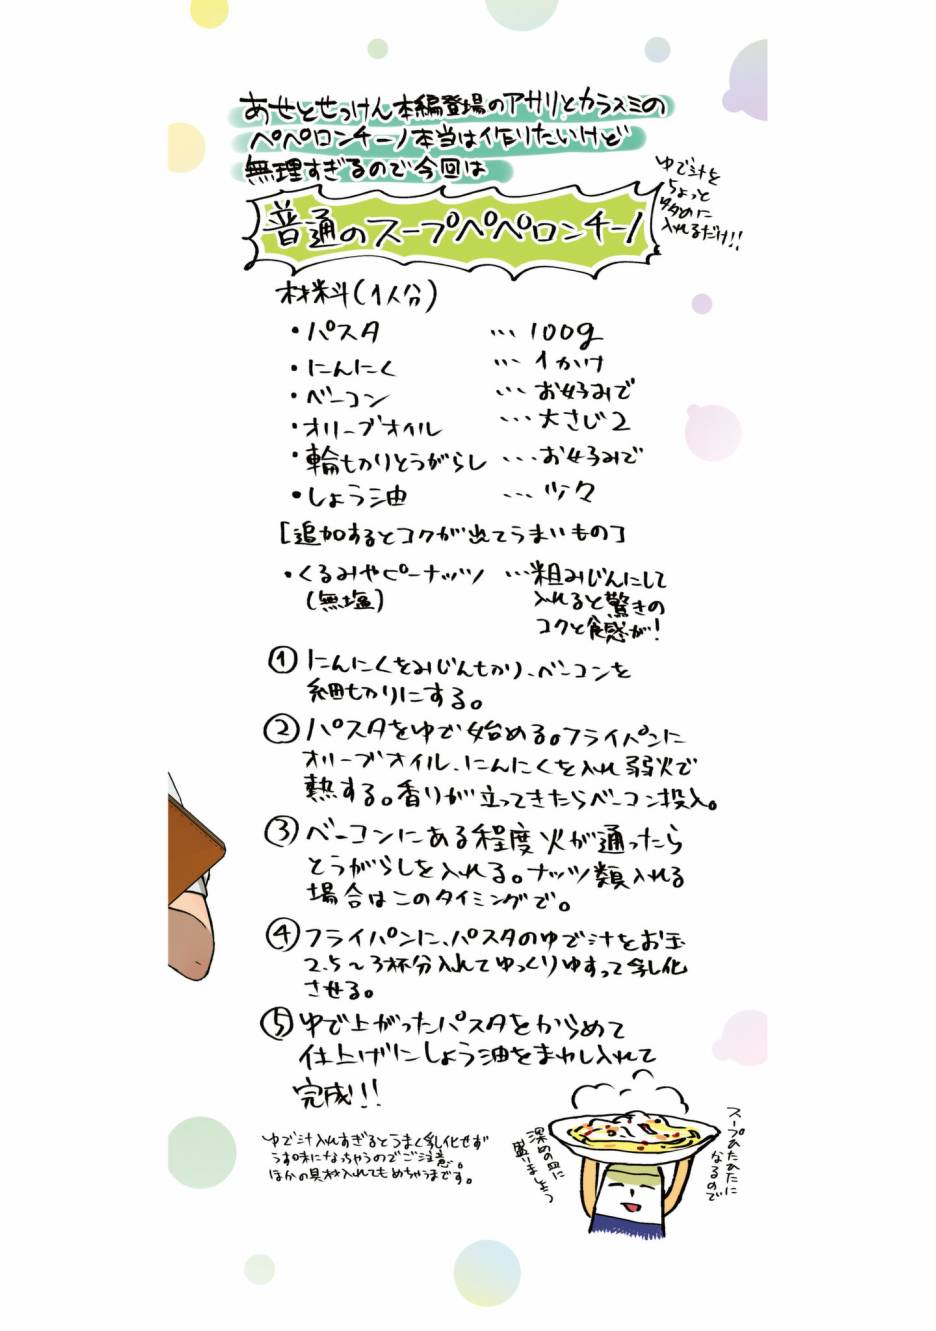 あせとせっけん本編登場のアサリとカラスミの
ペペロンチーノ本当は作りたいけど
無理すぎるので今回は
普通のスープペペロンチーノ
ゆで汁を
ちょっと
多めに
入れるだけ!!
材料(1人分)
・パスタ … 100g
・にんにく … 1かけ
・ベーコン … お好みで
・オリーブオイル … 大さじ2
・輪切りとうがらし … お好みで
・しょう油 … 少々
[追加するとコクが出てうまいもの]
・くるみやピーナッツ … 粗みじんにして
(無塩) 入れると驚きの
コクと食感が!
① にんにくをみじん切り、ベーコンを
細切りにする。
② パスタをゆで始める。フライパンに
オリーブオイル、にんにくを入れ弱火で
熱する。香りが立ってきたらベーコン投入。
③ ベーコンにある程度火が通ったら
とうがらしを入れる。ナッツ類入れる
場合はこのタイミングで。
④ フライパンに、パスタのゆで汁をお玉
2.5～3杯分入れてゆっくりゆすって乳化
させる。
⑤ ゆで上がったパスタをからめて
仕上げにしょう油をまわし入れて
完成!!
ゆで汁入れすぎるとうまく乳化せず
うす味になっちゃうのでご注意。
ほかの具材入れてもめちゃうまです。
スープひたひたに
なるので
深めの皿に
盛りましょう